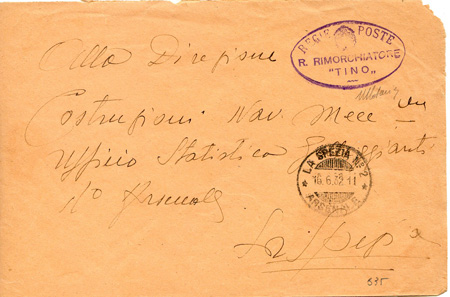 REGIE POSTE
R. RIMORCHIATORE
"TINO"
Alla Direzione
Costruzioni Nav. Mecc
Ufficio Statistica
R° Arsenale
La Spezia
LA SPEZIA N°2
16.6.32.11
ARSENALE
535